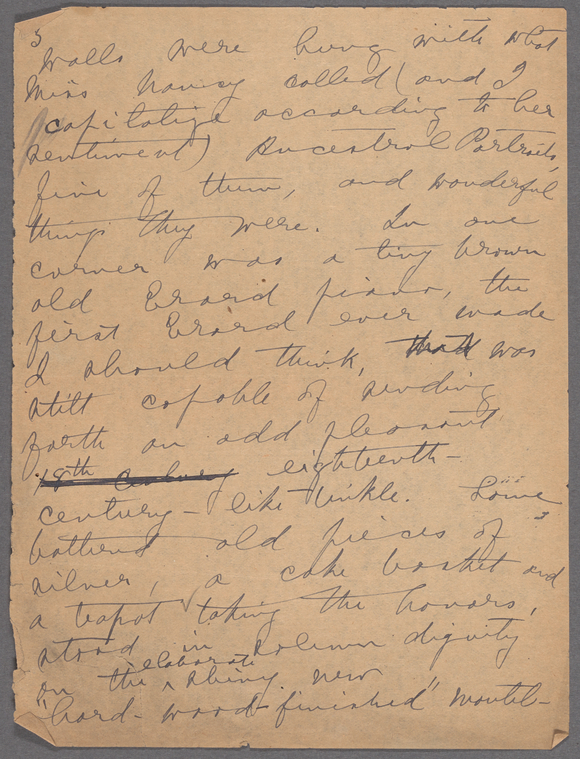 5
walls were hung with what
Miss Nancy called (and I
capitalize according to her
sentiment) Ancestral Portraits,
five of them, and wonderful
things they were. In one
corner was a tiny brown
old Erard piano, the
first Erard ever made
I should think, that was
still capable of sending
forth an odd pleasant
18th century eighteenth-
century-like tinkle. Some
battered old pieces of
silver, a cake basket and
a teapot taking the honors,
stood in solemn dignity
on the elaborate shiny new
"hard-wood-finished" mantel-